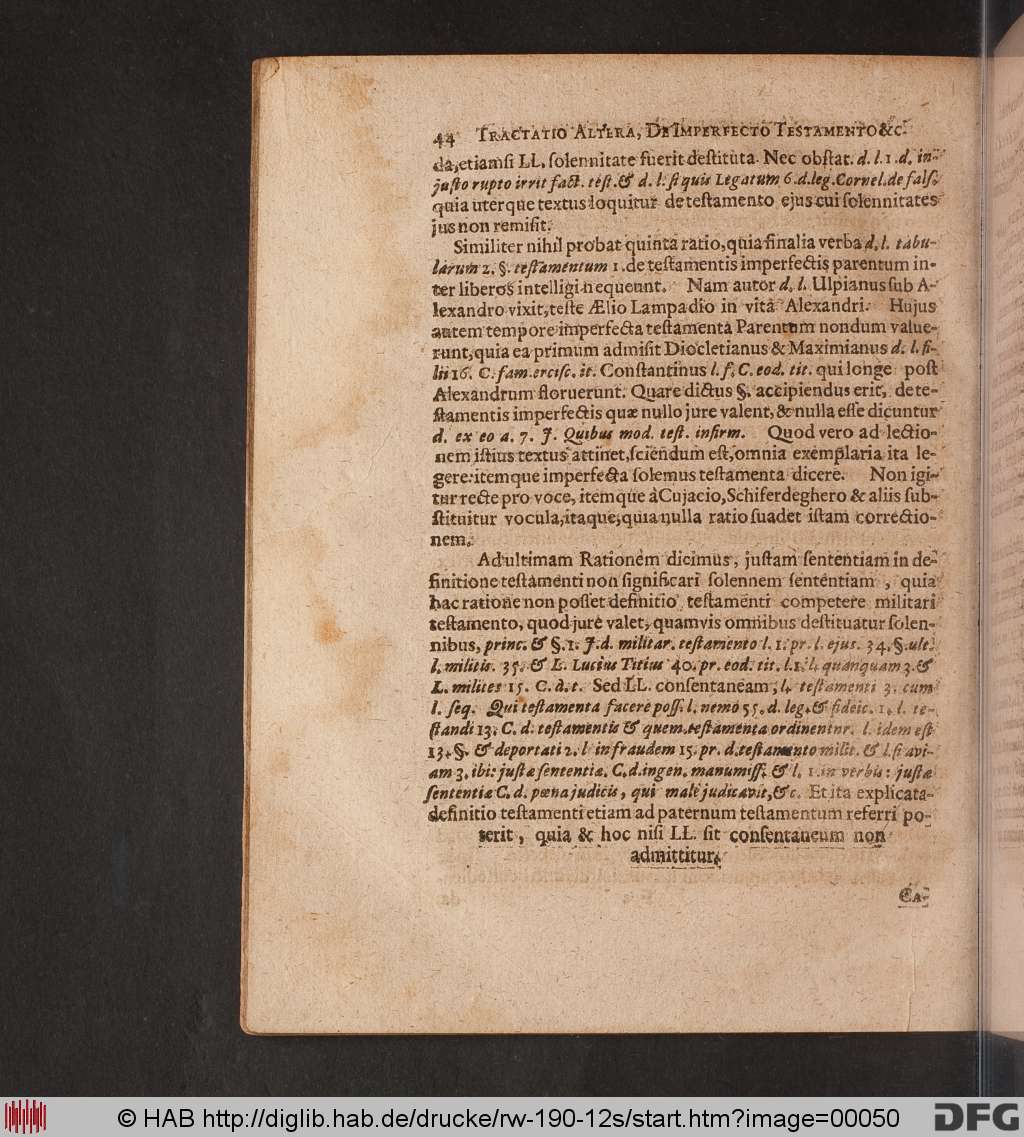 44 TRACTATIO ALTERA, DE IMPERFECTO TESTAMENTO &c.
da, etiamsi LL. solennitate fuerit destituta. Nec obstat. d. l. 1. d. in-
justo rupto irrit fact. test. & d. l. si quis Legatum 6. d. leg. Cornel. de fals.
quia uterque textus loquitur de testamento ejus cui solennitates
jus non remisit.
Similiter nihil probat quinta ratio, quia finalia verba d. l. tabu-
larum 2. §. testamentum 1. de testamentis imperfectis parentum in-
ter liberos intelligi nequeunt. Nam autor d. l. Ulpianus sub A-
lexandro vixit, teste Ælio Lampadio in vitâ Alexandri. Hujus
autem tempore imperfecta testamenta Parentum nondum value-
runt, quia ea primum admisit Diocletianus & Maximianus d. l. fi-
lii 16. C. fam. ercisc. it. Constantinus l. f. C. eod. tit. qui longe post
Alexandrum floruerunt. Quare dictus §. accipiendus erit, de te-
stamentis imperfectis quæ nullo jure valent, & nulla esse dicuntur
d. ex eo a. 7. J. Quibus mod. test. infirm. Quod vero ad lectio-
nem istius textus attinet, sciendum est, omnia exemplaria ita le-
gere: itemque imperfecta solemus testamenta dicere. Non igi-
tur recte pro voce, itemque à Cujacio, Schiferdeghero & aliis sub-
stituitur vocula, itaque, quia nulla ratio suadet istam correctio-
nem.
Ad ultimam Rationem dicimus, justam sententiam in de-
finitione testamenti non significari solennem sententiam, quia
hac ratione non posset definitio testamenti competere militari
testamento, quod jure valet, quamvis omnibus destituatur solen-
nibus, princ. & §. 1. J. d. militar. testamento l. 1. pr. l. ejus. 34. §. ult.
l. militis. 35. & L. Lucius Titius 40. pr. eod. tit. l. 1. l. quanquam 3. &
L. milites 15. C. d. t. Sed LL. consentaneam, l. testamenti 3. cum
l. seq. Qui testamenta facere poss. l. nemo 55. d. leg. & fideic. 1. l. te-
standi 13. C. d. testamentis & quem. testamenta ordinentur. l. idem est
13. §. & deportati 2. l in fraudem 15. pr. d. testamento milit. & l. si avi-
am 3. ibi: justæ sententiæ. C. d. ingen. manumiss. & l. 1. in verbis: justæ
sententiæ C. d. pœna judicis, qui malè judicavit, &c. Et ita explicata
definitio testamenti etiam ad paternum testamentum referri po-
terit, quia & hoc nisi LL. sit consentaneum non
admittitur.
CA-
© HAB http://diglib.hab.de/drucke/rw-190-12s/start.htm?image=00050
DFG